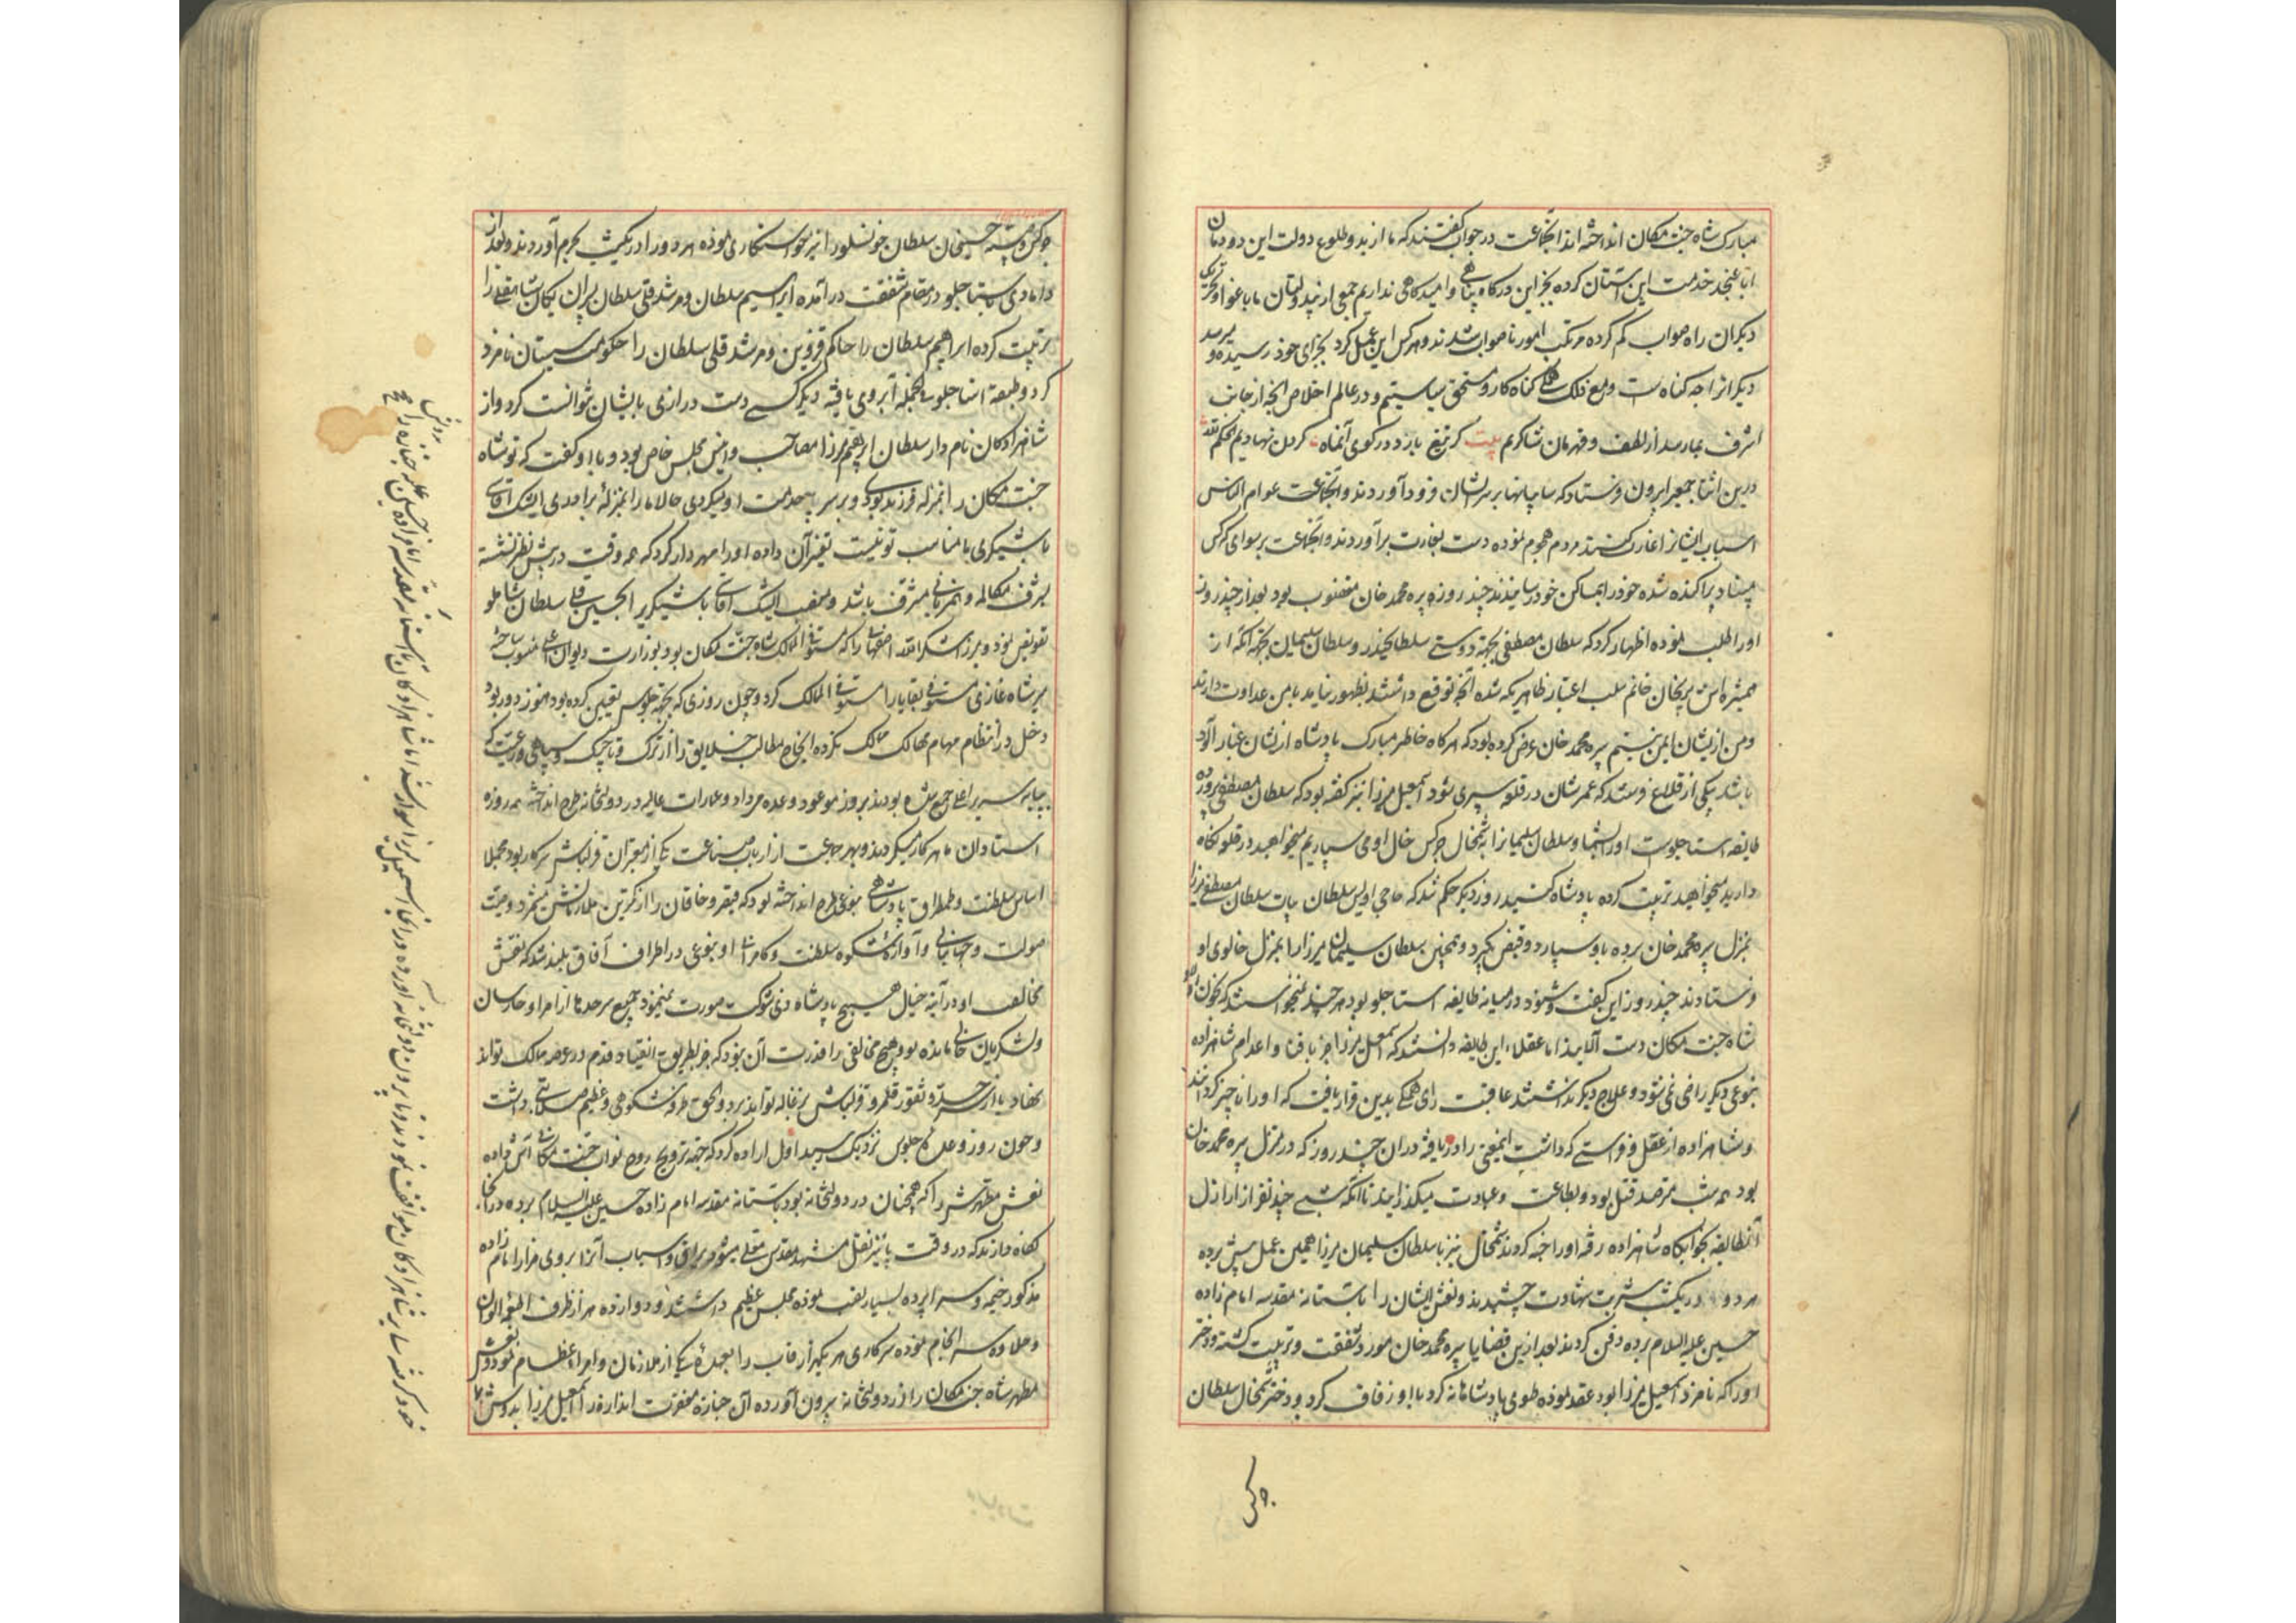 مبارک شاه جنت مکان انداخته‌اند آنجماعت در جواب گفتند که ما از بدو طلوع دولت این دودمان
اباً عن جد خدمت این آستان کرده بجز این درگاه پناهی و امیدگاهی نداریم جمعی از بیدولتان ما باغوا و تحریک
دیگران راه صواب گم کرده مرتکب امور ناصواب شدند و هر کس این عمل کرد بجزای خود رسیده و میرسد
دیگرانرا چه گناهست و مع ذلک همه گناه کار و مستحق سیاستیم و در عالم اخلاص آنچه از جانب
اشرف بما رسد از لطف و قهرمان شاکریم بیت گر تیغ بارد در کوی آنماه گردن نهادیم الحکم لله
درین اثنا جمعی را بیرون فرستاد که سایبانها بر سر ایشان فرود آوردند و آنجماعت عوام الناس
اسباب ایشانرا غارت کنند مردم هجوم نموده دست بغارت برآوردند و آنجماعت بر سوای که کس
مبیناد پراکنده شده خود را بماکن خود رسانیدند چند روزی پیره محمد خان مغضوب بود بعد از چند روز
او را طلب نموده اظهار کرد که سلطان مصطفی بجهة دوستی سلطان حیدر و سلطان سلیمان بجهة آنکه از
همشیره‌اش پریخان خانم سلب اعتبار ظاهریکه شده آنچه توقع داشتند بظهور نیامد با من عداوت دارند
و من ازیشان ایمن نیستم پیره محمد خان عرض کرده بود که هرگاه خاطر مبارک پادشاه ازیشان غبار آلود
باشد بیکی از قلاع فرستند که عمرشان در قلعه سپری شود اسمعیل میرزا نیز گفته بود که سلطان مصطفی پرورده
طایفه استاجلوست او را بشما و سلطان سلیمانرا بشمخال چرکس خال او می سپاریم میخواهید در قلعه نگاه
دارید میخواهید تربیت کرده پادشاه کنید روز دیگر حکم شد که حاجی اویس سلطان بیات سلطان مصطفی میرزا
بمنزل پیره محمد خان برده باو سپارد و قبض بگیرد و همچنین سلطان سلیمان میرزا را بمنزل خالوی او
فرستادند چند روز این گفت و شنود در میانه طایفه استاجلو بود هر چند نمیخواستند که بخون اولاد
شاه جنت مکان دست آلایند اما عقلاء این طایفه دانستند که اسمعیل میرزا جز بافنا و اعدام شاهزاده
بنوعی دیگر راضی نمی شود و علاج دیگر نداشتند عاقبت رای همگی بدین قرار یافت که او را ناچیز گردانند
و شاهزاده از عقل و فراستی که داشت اینمعنی را دریافته در آن چند روز که در منزل پیره محمد خان
بود همه شب مترصد قتل بود و بطاعت و عبادت میگذرانید تا آنکه شبی چند نفر از اراذل
آنطایفه بخوابگاه شاهزاده رفته او را خفه کردند شمخال نیز با سلطان سلیمان میرزا همین عمل پیش برده
هر دو در یکشب شربت شهادت چشیدند و نعش ایشان را بآستانه مقدسه امام زاده
حسین علیه السلام برده دفن کردند بعد ازین قضایا پیره محمد خان مورد شفقت و تربیت گشته دختر
او را که نامزد اسمعیل میرزا بود عقد نموده طوی پادشاهانه کرد با او زفاف کرد و دختر شمخال سلطان
چرکس
چرکس و حسینخان سلطان خونسلو را نیز خواستگاری نموده هر دو را در یکشب بحرم آوردند و بعد از
دامادی استاجلو در مقام شفقت درآمده ابراهیم سلطان و مرشد قلی سلطان پسران یکان شاهقلی را
تربیت کرده ابراهیم سلطان را حاکم قزوین و مرشد قلی سلطان را حکومت سیستان نامزد
کرد و طبقه استاجلو فی الجمله آبروی یافته دیگر کسی دست درازی بایشان نتوانست کرد و از
شاهزادگان نامدار سلطان ابراهیم میرزا مصاحب و انیس مجلس خاص بود و با او گفت که تو شاه
جنت مکان را بمنزله فرزند بودی و برسر پا خدمت او میکردی حالا ما را بمنزلۀ برادری ایشک آقاسی
باشیگری ما مناسب تو نیست تغییر آن داده او را مهردار کرد که همه وقت در پیش نظر نشسته
بشرف مکالمه و همزبانی مشرف باشد و منصب ایشک آقاسی باشیگری الحسین قلی سلطان شاملو
تفویض نمود و میرزا شکرالله اصفهانی را که مستوفی الممالک شاه جنت مکان بود بوزارت دیوان اعلی منسوب ساخته
میر شاه غازی مستوفی بقایا را مستوفی الممالک کرد و چون روزی که بجهة جلوس تعیین کرده بود هنوز دور بود
دخل در انتظام مهام ممالک نکرده انجاح مطالب خلایق را از ترک و تاجیک و سپاهی و رعیت که
بپایه سریر اعلی جمع شده بودند بروز موعود وعده میداد و عمارات عالیه در دولتخانه طرح انداخته همه روزه
استادان ماهر کار میکردند و بهر جماعت از ارباب صناعت یکی از معتبران قزلباش سرکار بود مجملا
اساس سلطنت و طمطراق پادشاهی بنوعی طرح انداخته بود که قیصر و خاقان را از کمترین ملازمانش میشمرد و صیت
صولت و جهانبانی و آوازۀ شکوه سلطنت و کامرانی او بنوعی در اطراف آفاق بلند شد که نقش
مخالفت او در آینه خیال هیچ پادشاه ذی شوکت صورت نمیبست جمیع سرحدها از امرا و حارسان
و لشکریان خالی مانده بود هیچ مخالفی را قدرت آن نبود که جز بطریق انقیاد قدم در عرصه ممالک تواند
نهاد یا از سرحد و ثغور قلمرو قزلباش بزغاله تواند برد و الحق طرفه شکوهی و عظیم صلابتی داشت
و چون روز وعده جلوس نزدیک رسید اول اراده کرد که جهة ترویح روح نواب جنت مکانی آش داده
نعش مطهرش را که همچنان در دولتخانه بود بآستانه مقدسه امام زاده حسین علیه السلام برده در آنجا
نگاه دارند که در وقت پائیز نقل مشهد مقدس معلی میشود یراق و اسباب آنرا بروی مزار امام زاده
مذکور خیمه و سراپرده بسیار نصب نموده مجلس عظیم داشتند و دوازده هزار ظرف اطعمه الوان
و حلاوه سرانجام نموده سرکاری هر یکهزار قاب را بعهدۀ یکی از ملازمان و امراء عظام نمود و نعش
مطهر شاه جنت مکان را از دولتخانه بیرون آورده آن جنازۀ مغفرت اندازه را اسمعیل میرزا بدوش
خود گرفته سایر شاهزادگان موافقت نمودند و تا بیرون دولتخانه آورده در آنجا اسمعیل میرزا سوار شد اما شاهزادگان تا آستانه مقدسه امامزاده حسین علیه جنازه را